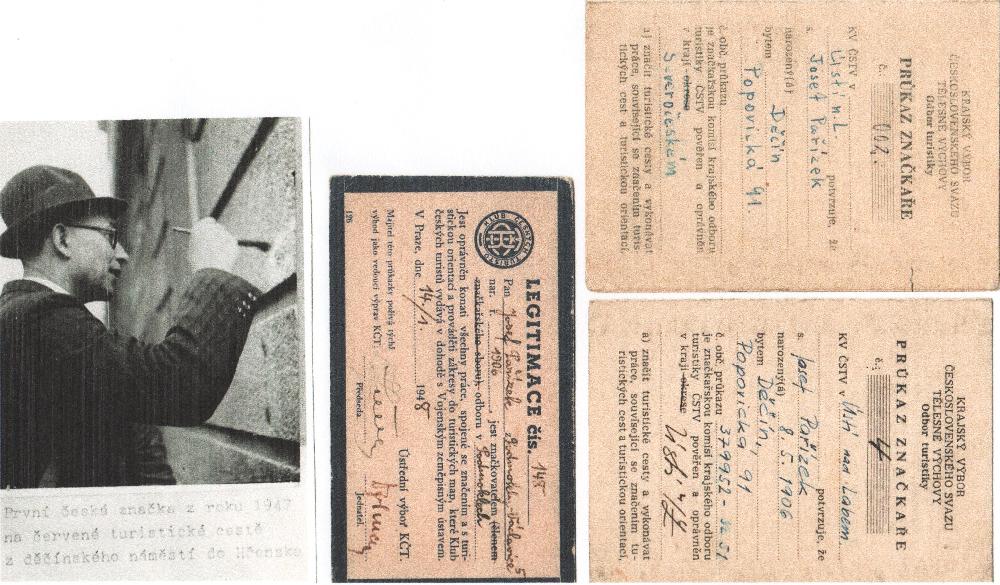 První česká značka z roku 1947
na červené turistické cestě
z děčínského náměstí do Hřenska
LEGITIMACE čís. 145
KLUB ČESKÝCH TURISTŮ
Pan Josef Pařízek
nar. r. 1906, jest značkovatelem (členem
značkařského sboru), odboru v Podmoklech
Jest oprávněn konati všechny práce, spojené se značením a s turi-
stickou orientací a prováděti zákresy do turistických map, které Klub
českých turistů vydává v dohodě s Vojenským zeměpisným ústavem.
V Praze, dne 14/1. 1948
Ústřední výbor KČT.
Majitel této průkazky požívá týchž
výhod jako vedoucí výprav KČT.
Předseda
Jednatel
126
KRAJSKÝ VÝBOR
ČESKOSLOVENSKÉHO SVAZU
TĚLESNÉ VÝCHOVY
Odbor turistiky
PRŮKAZ ZNAČKAŘE
č. 002.
KV ČSTV v Ústí n.L. potvrzuje, že
s. Josef Pařízek
narozený(á)
bytem Děčín
Popovická 91.
č. obč. průkazu
je značkařskou komisí krajského odboru
turistiky ČSTV pověřen a oprávněn
v kraji okrese
Severočeském
a) značit turistické cesty a vykonávat
práce, související se značením turis
tických cest a turistickou orientací,
KRAJSKÝ VÝBOR
ČESKOSLOVENSKÉHO SVAZU
TĚLESNÉ VÝCHOVY
Odbor turistiky
PRŮKAZ ZNAČKAŘE
č. 4
KV ČSTV v Ústí nad Labem potvrzuje, že
s. Josef Pařízek
narozený(á) 8. 5. 1906
bytem Děčín,
Popovická 91
č. obč. průkazu 379952
je značkařskou komisí krajského odboru
turistiky ČSTV pověřen a oprávněn
v kraji okrese Ústí n/L
a) značit turistické cesty a vykonávat
práce, související se značením tu-
ristických cest a turistickou orientací,